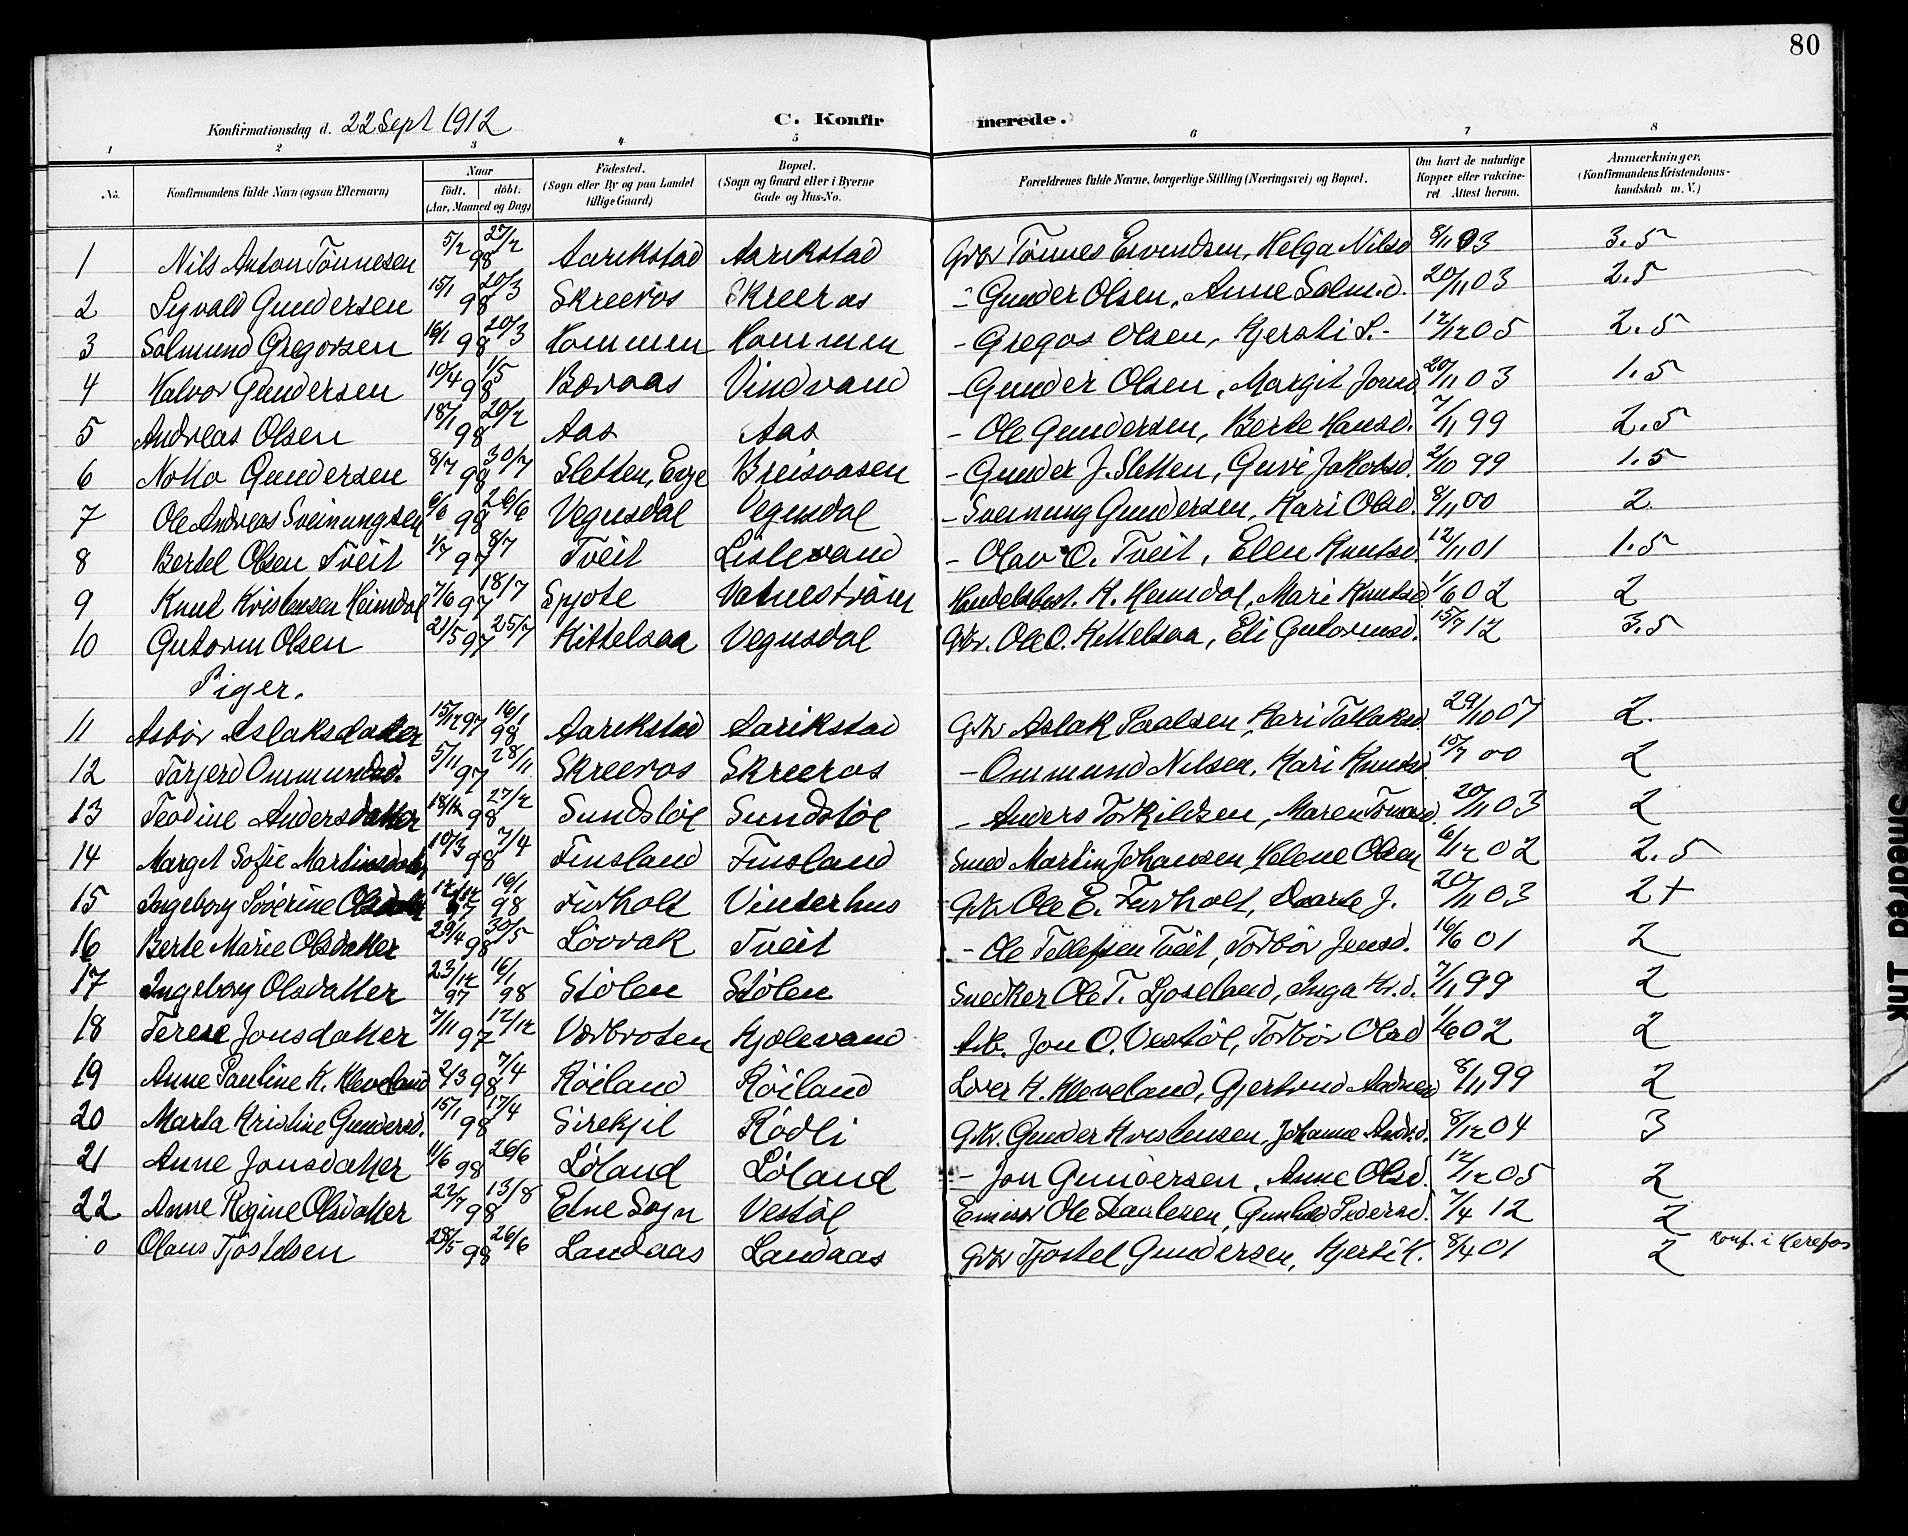 80
Konfirmationsdag d. 22 Sept 1912 C. Konfir merede.
1 2 3 4 5 6 7 8
No. Konfirmandens fulde Navn (ogsaa Efternavn) Naar födt. döbt. (Aar, Maaned og Dag) Födested. (Sogn eller By og paa Landet tillige Gaard) Bopæl. (Sogn og Gaard eller i Byerne Gade og Hus-No. Forældrenes fulde Navne, borgerlige Stilling (Næringsvei) og Bopæl. Om havt de naturlige Kopper eller vakcineret Attest herom. Anmærkninger. (Konfirmandens Kristendomskundskab m. V.)
1 Nils Anton Tönnesen 5/2 98 27/2 Aarikstad Aarikstad Gbr Tönnes Eivendsen, Helga Nilsd 8/11 03 3.5
2 Sigvald Gundersen 15/1 98 20/3 Skreeros Skreeros - Gunder Olsen, Anne Salm.d. 20/11 03 2.5
3 Salmund Gregorsen 16/1 98 20/3 Hommen Hommen - Gregos Olsen, Kjersti S.- 12/12 05 2.5
4 Halvor Gundersen 10/4 98 1/5 Bævaas Vindvand - Gunder Olsen, Margit Jonsd. 20/11 03 1.5
5 Andreas Olsen 18/1 98 20/2 Aas Aas - Ole Gundersen, Berte Hansd. 7/11 99 2.5
6 Notto Gundersen 8/7 98 30/7 Sletten, Evje Breisvasen - Gunder J. Sletten, Guri Jakobsd. 2/10 99 1.5
7 Ole Andreas Sveinungsen 6/6 98 26/6 Vegusdal Vegusdal - Sveinung Gundersen, Kari Olsd. 8/11 00 2
8 Bertel Olsen Tveit 1/7 97 8/7 Tveit Lislevand - Olav O. Tveit, Ellen Knutsd. 12/11 01 1.5
9 Knud Kristensen Heimdal 7/6 97 18/7 Spjote Vatneström Handelsbest. K. Heimdal, Mari Knutsd. 1/6 02 2
10 Gutorm Olsen 21/5 97 25/7 Kittelsaa Vegusdal Gbr. Ole O. Kittelsaa, Eli Gutormsd. 15/7 12 3.5
Piger.
11 Asbör Aslaksdatter 15/12 97 16/1 98 Aarikstad Aarikstad Gbr Aslak Paalsen, Kari Tallaksd. 29/10 07 2.
12 Tarjerd Ommundsd. 5/11 97 28/11 Skreeros Skreeros - Ommund Nilsen, Kari Knutsd 15/7 00 2
13 Teodine Andersdatter 18/12 98 27/2 Sundstöl Sundstöl - Anders Torkildsen, Maren Tomasd. 20/11 03 2
14 Margit Sofie Martinsdatter 10/3 98 7/4 Finsland Finsland Smed Martin Johansen, Helene Olsen 6/12 02 2.5
15 Ingeborg Séverine Olsdatter 12/12 97 16/1 98 Furholt Vinterhus Gbr Ole E. Furholt, Daarte J. 20/11 03 2+
16 Berte Marie Olsdatter 29/4 98 30/5 Lövvak Tveit - Ole Tellefsen Tveit, Torbör Jensd. 16/6 01 2
17 Ingeborg Olsdatter 23/12 97 16/1 98 Stölen Stölen Snedker Ole T. Ljoseland, Inga Kr.d. 7/11 99 2
18 Terese Jonsdatter 7/11 97 12/12 Værbroten Kjölevand Arb. Jon O. Vestöl, Torbör Olsd 1/6 02 2
19 Anne Pauline K. Kleveland 2/3 98 7/4 Röiland Röiland Lærer K. Kleveland, Gjertrud Andrea 8/11 99 2
20 Marta Kristine Gundersd. 15/1 98 17/4 Sirekjil Rödli Gbr. Gunder Kristensen, Johanne And.d. 8/12 04 3
21 Anne Jonsdatter 11/6 98 26/6 Löland Löland - Jon Gundersen, Anne Olsd. 12/12 05 2
22 Anne Regine Olsdatter 22/7 98 13/8 Etne Sogn Vestöl Emissær Ole Daulesen, Gunhild Pedersd. 7/4 12 2
0 Olaus Tjöstelsen 28/5 98 26/6 Landaas Landaas Gbr Tjostel Gundersen, Kjersti K. 8/4 01 2 Konf. i Herefos
Smeared Ink